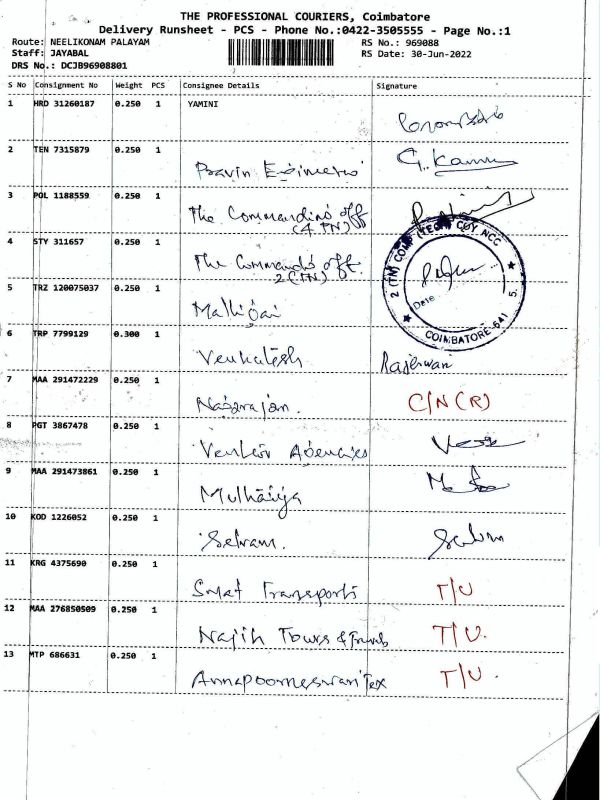 THE PROFESSIONAL COURIERS, Coimbatore
Delivery Runsheet - PCS - Phone No.:0422-3505555 - Page No.:1
Route: NEELIKONAM PALAYAM
RS No.: 969088
Staff: JAYABAL
RS Date: 30-Jun-2022
DRS No.: DCJB96908801
S No Consignment No Weight PCS Consignee Details Signature
1 HRD 31260187 0.250 1 YAMINI
2 TEN 7315879 0.250 1
Pravin Enjineers G. Kannu
3 POL 1188559 0.250 1
The Commanding off
(4 TN)
4 STY 311657 0.250 1
The Commandg off.
2 (TN)
2 (TN) COMP (TECH) COY NCC
Date
COIMBATORE-641 5.
5 TRZ 120075037 0.250 1
Malligai
6 TRP 7799129 0.300 1
Venkatesh
7 MAA 291472229 0.250 1
Nagarajan. C/N (R)
8 PGT 3867478 0.250 1
Agencies
9 MAA 291473861 0.250 1
Muthaiya
10 KOD 1226052 0.250 1
Selvam.
11 KRG 4375690 0.250 1
Smat Transports T/U
12 MAA 276850509 0.250 1
Najih Tours & Travels T/U.
13 MTP 686631 0.250 1
Annapoorneswari Tex T/U.